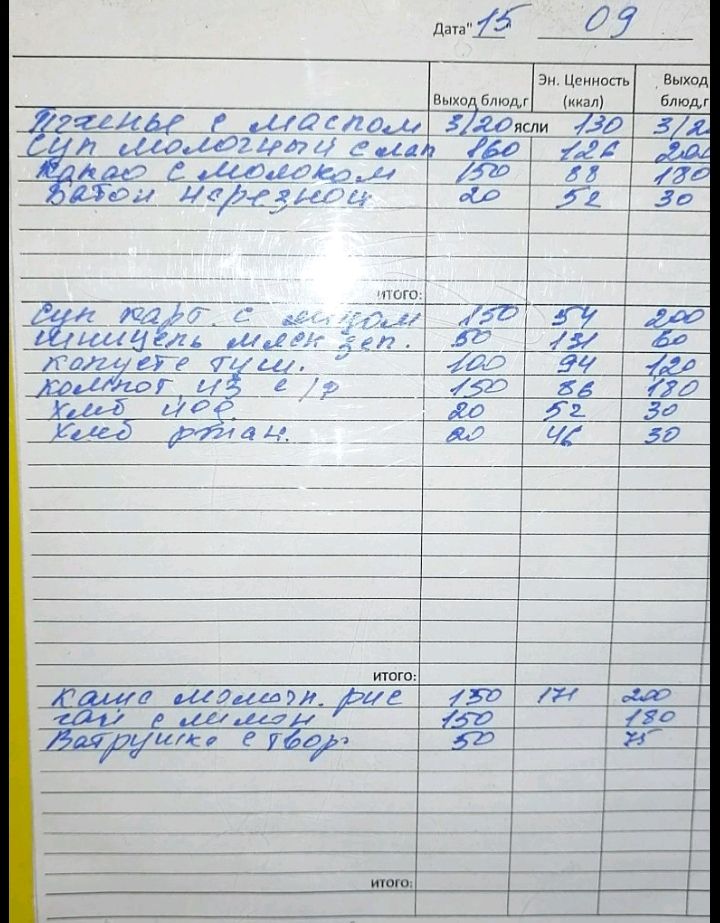 Дата "15" 09
Выход блюд,г Эн. Ценность (ккал) Выход блюд,г
Печенье с маслом 3/20 ясли 130 3/2
Суп молочный с мак 160 126 200
Какао с молоком 150 88 180
Батон нарезной 20 52 30
ИТОГО:
Суп карт. с яйцом 150 54 200
шницель мясн зап. 50 131 60
капуста туш. 100 94 120
компот из с/ф 150 86 180
хлеб йод 20 52 30
хлеб ржан. 20 46 30
ИТОГО:
каша молочн. рис 150 171 200
чай с лимон 150 180
Ватрушка с твор 50 75
ИТОГО: